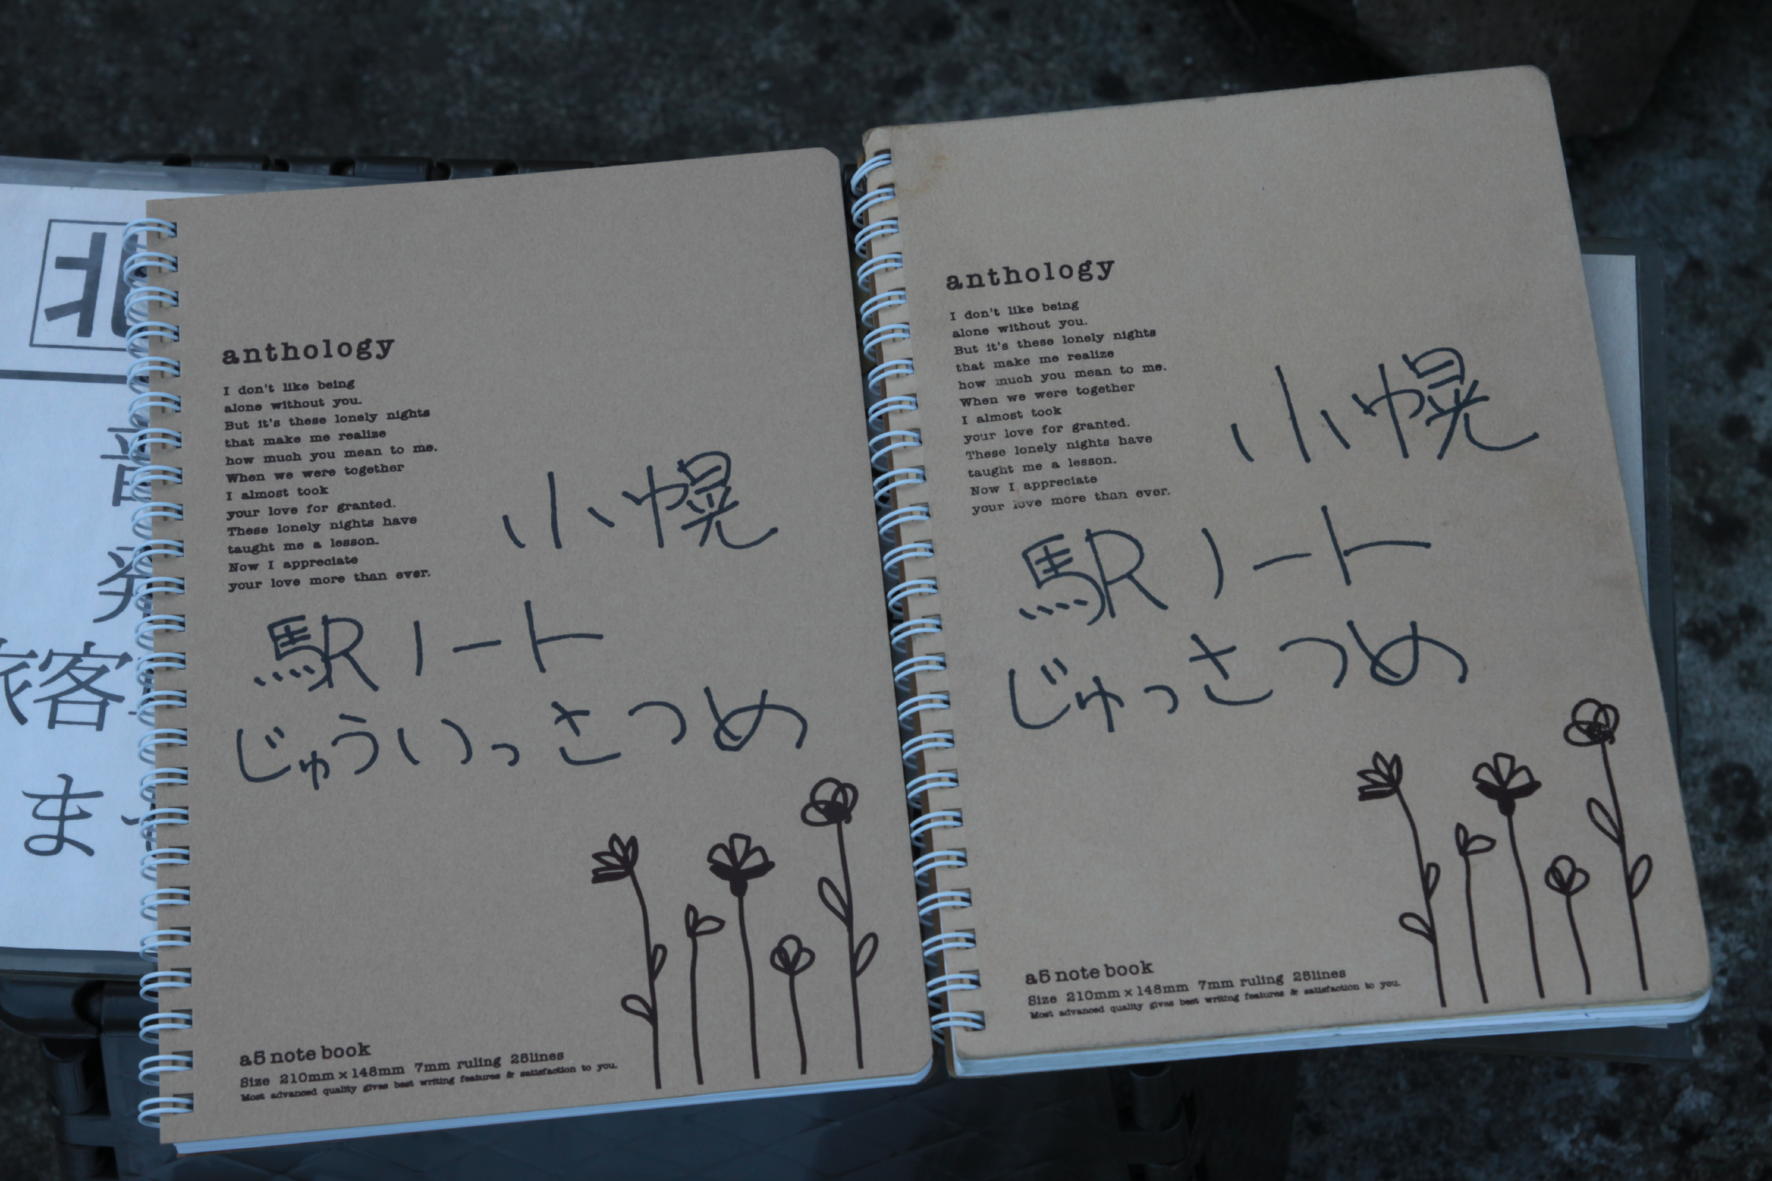 北
旅客
ま
anthology
I don't like being
alone without you.
But it's these lonely nights
that make me realize
how much you mean to me.
When we were together
I almost took
your love for granted.
These lonely nights have
taught me a lesson.
Now I appreciate
your love more than ever.
小幌
駅ノート
じゅういっさつめ
a5 note book
Size 210mm×148mm 7mm ruling 25lines
Most advanced quality gives best writing features & satisfaction to you.
anthology
I don't like being
alone without you.
But it's these lonely nights
that make me realize
how much you mean to me.
When we were together
I almost took
your love for granted.
These lonely nights have
taught me a lesson.
Now I appreciate
your love more than ever.
小幌
駅ノート
じゅっさつめ
a5 note book
Size 210mm×148mm 7mm ruling 25lines
Most advanced quality gives best writing features & satisfaction to you.